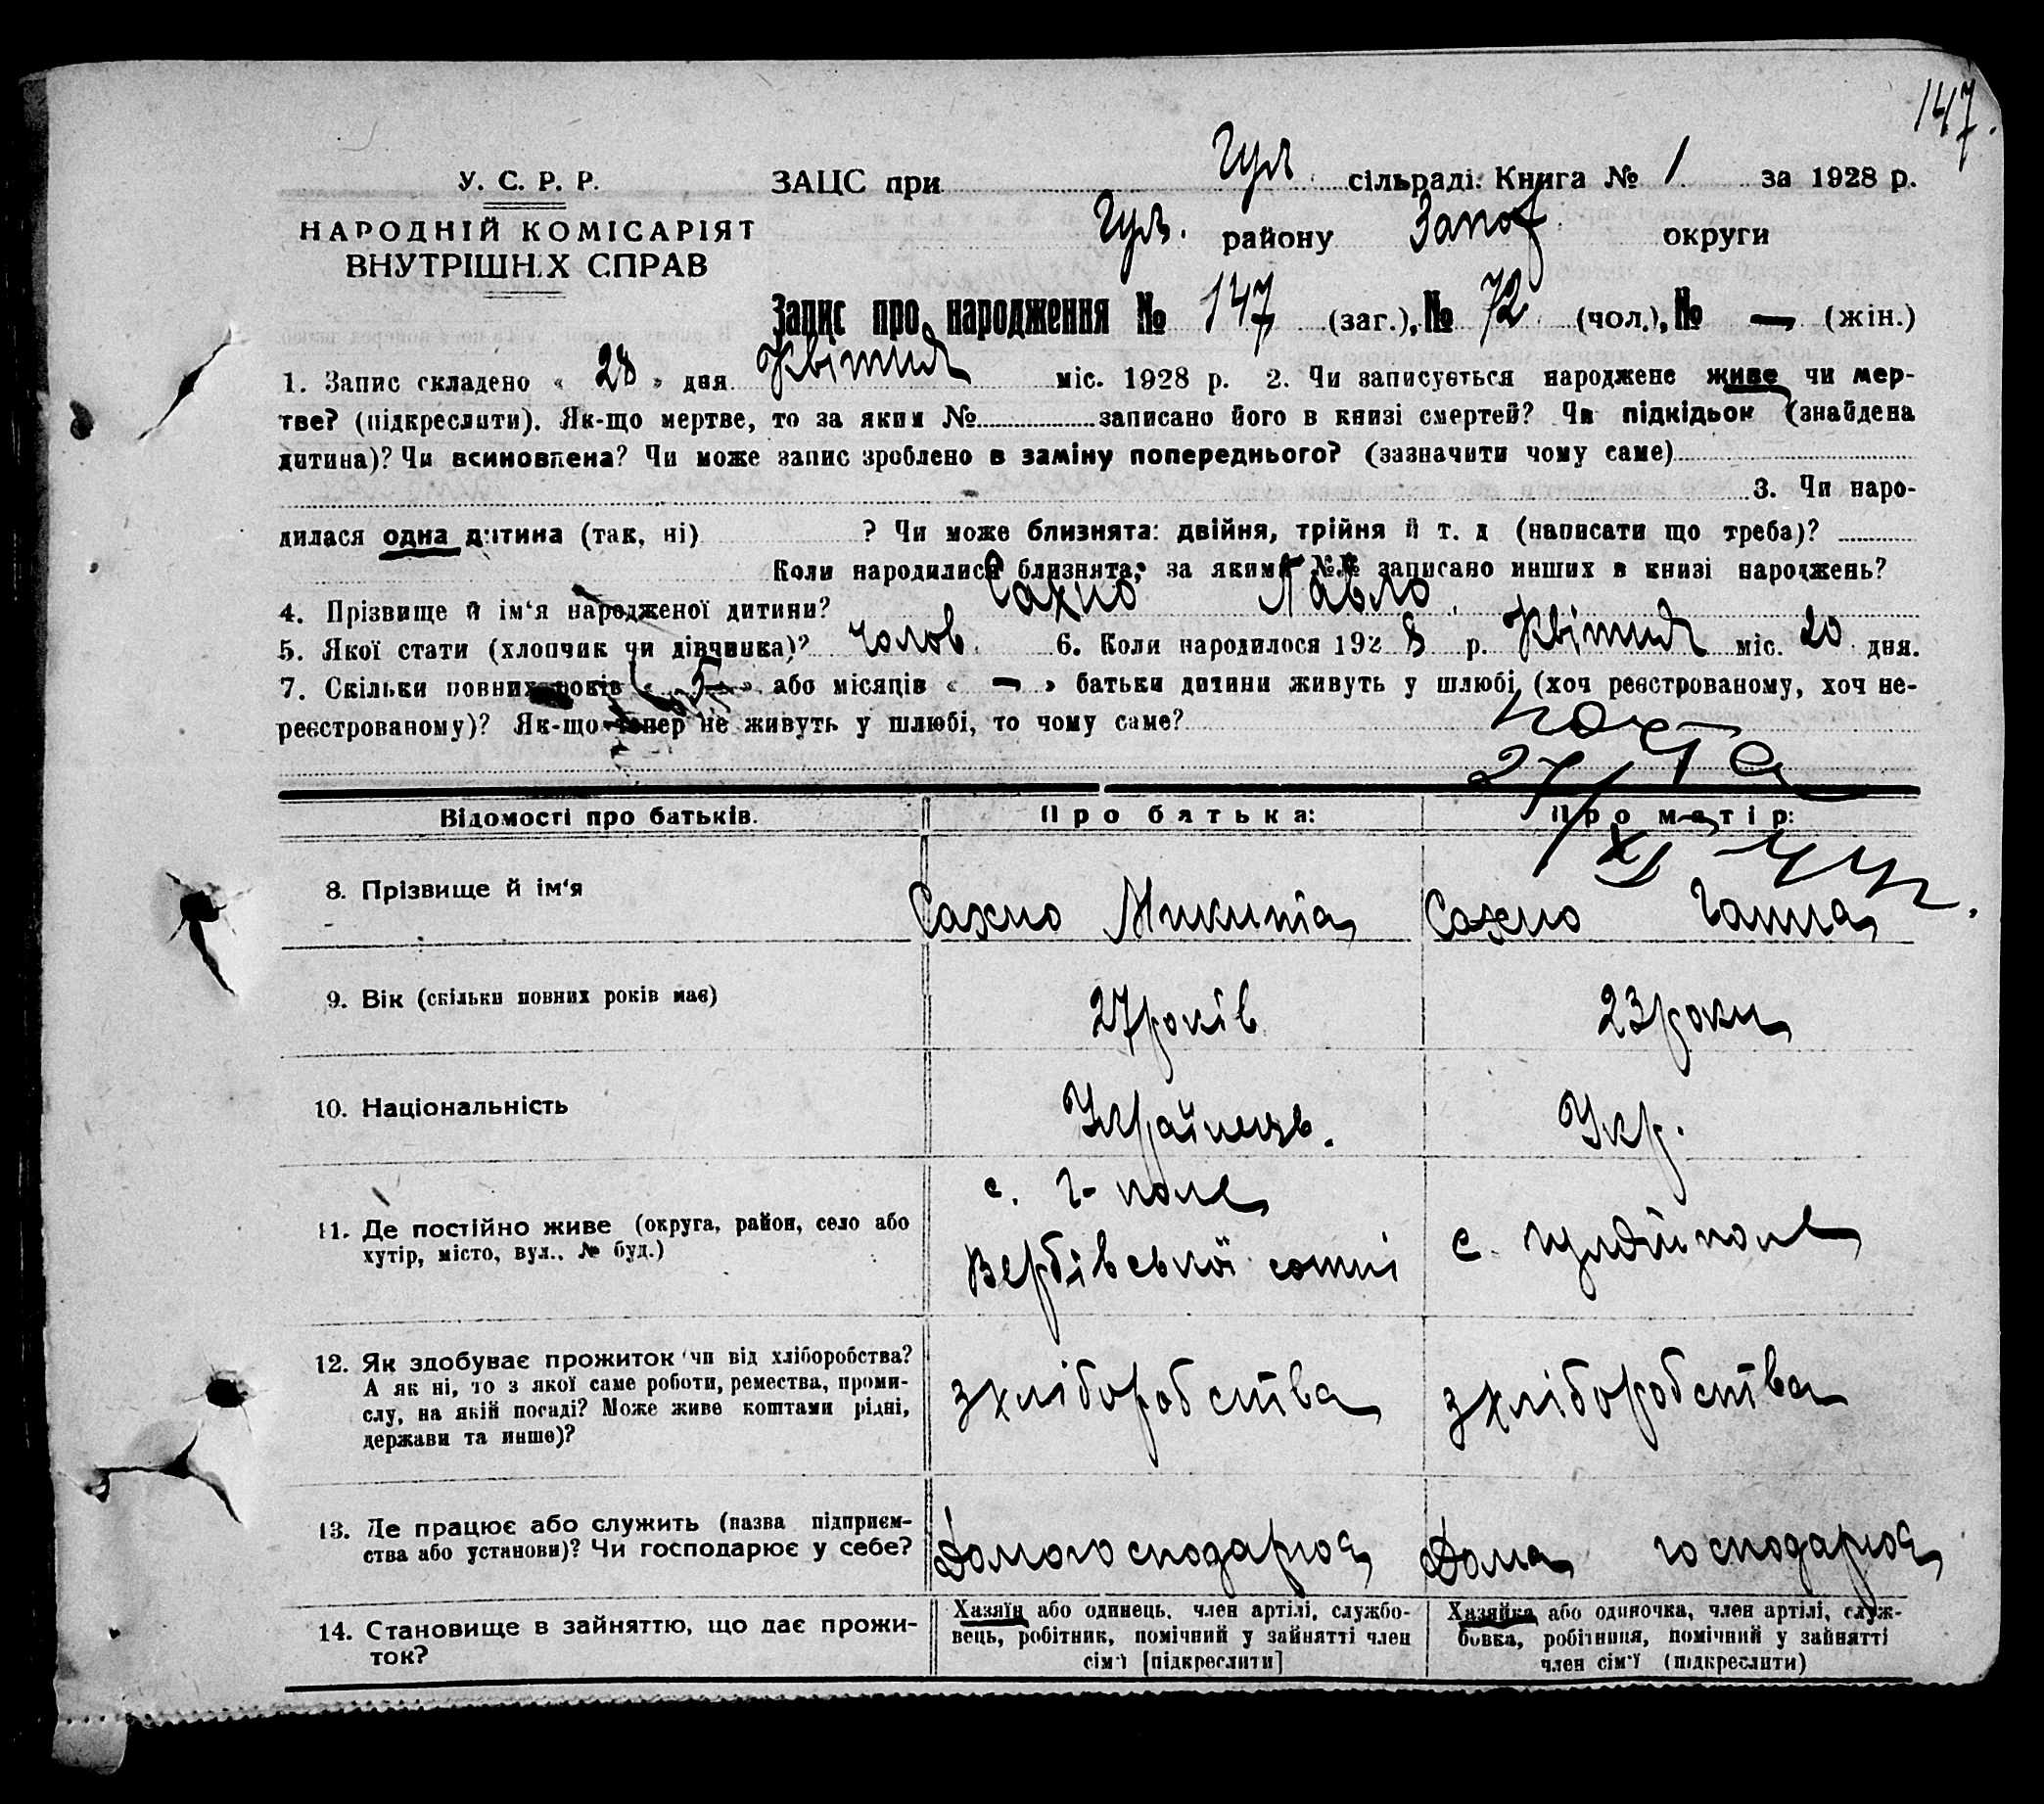 147.
У. С. Р. Р.
НАРОДНІЙ КОМІСАРІЯТ
ВНУТРІШНІХ СПРАВ
ЗАЦС при Гул. сільраді: Книга № 1 за 1928 р.
Гул. району Запоř округи
Запис про народження № 147 (заг.), № 72 (чол.), № — (жін.)
1. Запис складено « 28 » дня Квітня міс. 1928 р. 2. Чи записується народжене живе чи мер-
тве? (підкреслити). Як-що мертве, то за яким № записано його в книзі смертей? Чи підкідьок (знайдена
дитина)? Чи всиновлена? Чи може запис зроблено в заміну попереднього? (зазначити чому саме)
3. Чи наро-
дилася одна дитина (так, ні) ? Чи може близнята: двійня, трійня й т. д (написати що треба)?
Коли народилися близнята, за якими №№ записано инших в книзі народжень?
4. Прізвище й ім'я народженої дитини? Сахно Павло
5. Якої стати (хлопчик чи дівчинка)? чолов. 6. Коли народилося 1928 р. Квітня міс. 20 дня.
7. Скільки повних років « 5 » або місяців « — » батьки дитини живуть у шлюбі (хоч реєстрованому, хоч не-
реєстрованому)? Як-що тепер не живуть у шлюбі, то чому саме?
27/XI
Відомості про батьків. Про батька: Про матір:
8. Прізвище й ім'я Сахно Микита Сахно Ганна
9. Вік (скільки повних років має) 27 років 23 роки
10. Національність Українець. Укр.
11. Де постійно живе (округа, район, село або
хутір, місто, вул.. № буд.)
с. Г-поле
Вербівської сотні
с. Гуляйполе
12. Як здобуває прожиток чи від хліборобства?
А як ні, то з якої саме роботи, ремества, проми-
слу, на якій посаді? Може живе коштами рідні,
держави та инше)?
з хліборобства з хліборобства
13. Де працює або служить (назва підприєм-
ства або установи)? Чи господарює у себе?
Дома господарює Дома господарює
14. Становище в зайняттю, що дає прожи-
ток?
Хазяїн або одинець, член артілі, службо-
вець, робітник, помічний у зайнятті член
сім'ї [підкреслити]
Хазяйка або одиночка, член артілі, служ-
бовка, робітниця, помічний у зайнятті
член сім'ї (підкреслити)